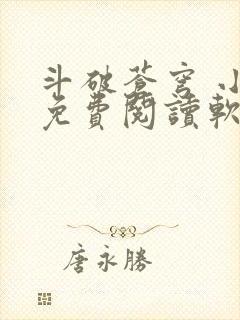 斗破苍穹 小
免費閱讀軟
唐永勝